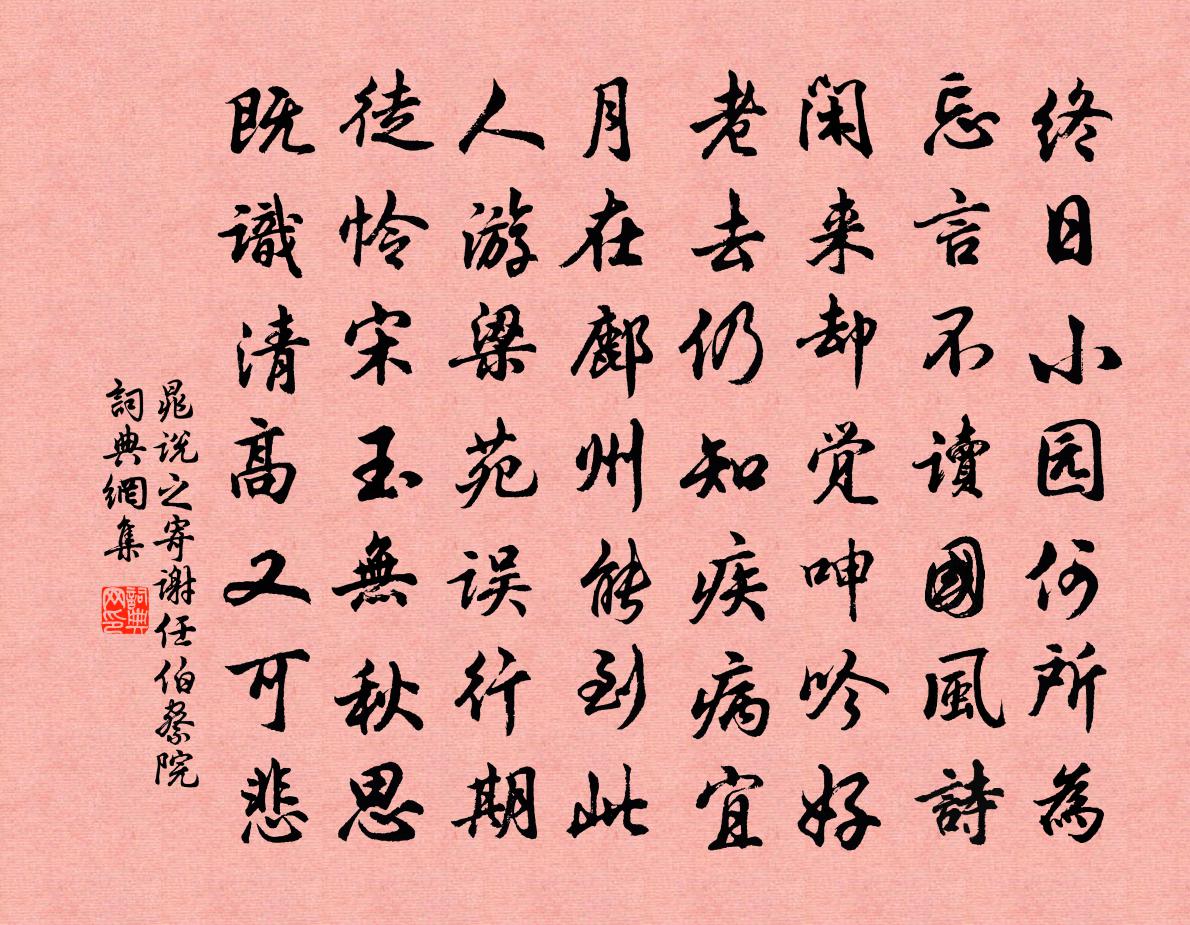 终日小园何所為
忘言不讀國風詩
闲来却觉呻吟好
老去仍知疾病宜
月在鄜州能到此
人游梁苑误行期
徒怜宋玉無秋思
既識清高又可悲
晁说之寄谢任伯察院
詞典網集
詞典网印